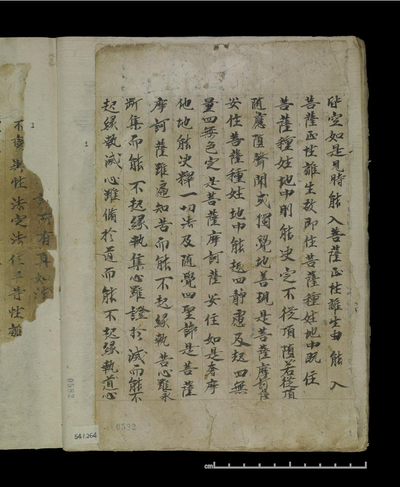 皆空如是見時能入菩薩正性離生由能入
菩薩正性離生故即住菩薩種姓地中既住
菩薩種姓地中則能决定不從頂墮若從頂
墮應墮聲聞或獨覺地善現是菩薩摩訶薩
安住菩薩種姓地中能起四靜慮及起四無
量四無色定是菩薩摩訶薩安住如是奢摩
他地能决擇一切法及隨覺四聖諦是菩薩
摩訶薩雖遍知苦而能不起緣執苦心雖永
斷集而能不起緣執集心雖證於滅而能不
起緣執滅心雖脩於道而能不起緣執道心
有真如法
不變異性法定法住平等性離
0532
0532
54/264
cm